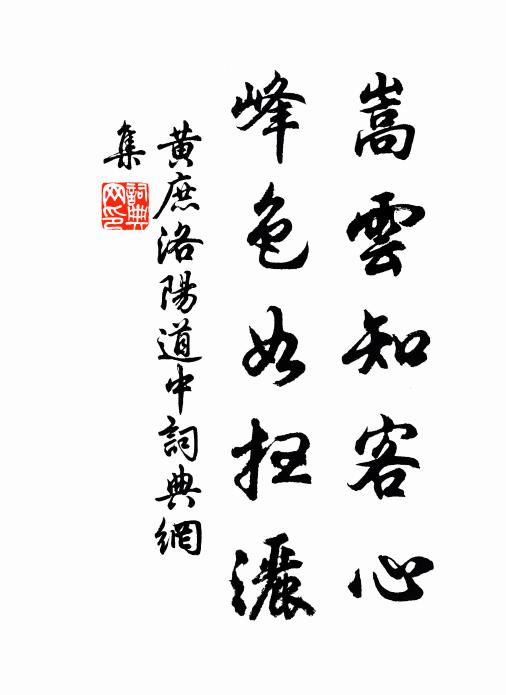 嵩雲知客心
峰色如扫灑
黄庶洛陽道中詞典網
集
詞典
网印